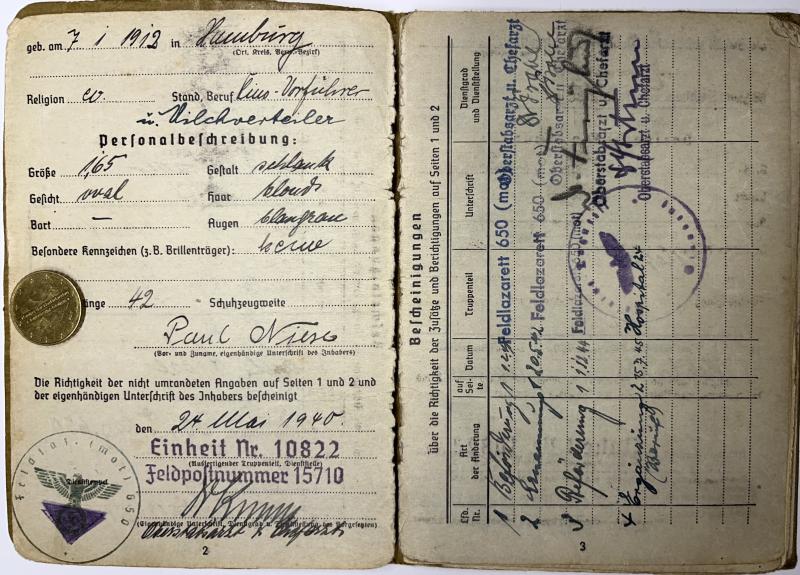 geb. am 7 1 1912 in Hamburg
(Ort, Kreis, Verw.-Bezirk)
Religion ev. Stand, Beruf Vorführer
u. Milchverteiler
Personalbeschreibung:
Größe 1,65 Gestalt schlank
Gesicht oval Haar blond
Bart — Augen blaugrau
Besondere Kennzeichen (z.B. Brillenträger): keine
änge 42 Schuhzeugweite
Paul
(Vor- und Zuname, eigenhändige Unterschrift des Inhabers)
Die Richtigkeit der nicht umrandeten Angaben auf Seiten 1 und 2 und
der eigenhändigen Unterschrift des Inhabers bescheinigt
den 24 Mai 1940.
Einheit Nr. 10822
(Ausfertigender Truppenteil, Dienststelle)
Feldpostnummer 15710
Dienststempel
2
Bescheinigungen
über die Richtigkeit der Zusätze und Berichtigungen auf Seiten 1 und 2
Lfd. Nr.
Art der Änderung
auf Seite
Datum
Truppenteil
Unterschrift
Dienstgrad und Dienststellung
1 Beförderung 1 Feldlazarett 650 (mot) Oberstabsarzt u. Chefarzt
2 Ernennung 1 Feldlazarett 650 (mot) Oberstabsarzt
3 Beförderung 1 Feldlazarett 650 (mot) Oberstabsarzt u. Chefarzt
4 Ergänzung 2 Oberstabsarzt u. Chefarzt
3